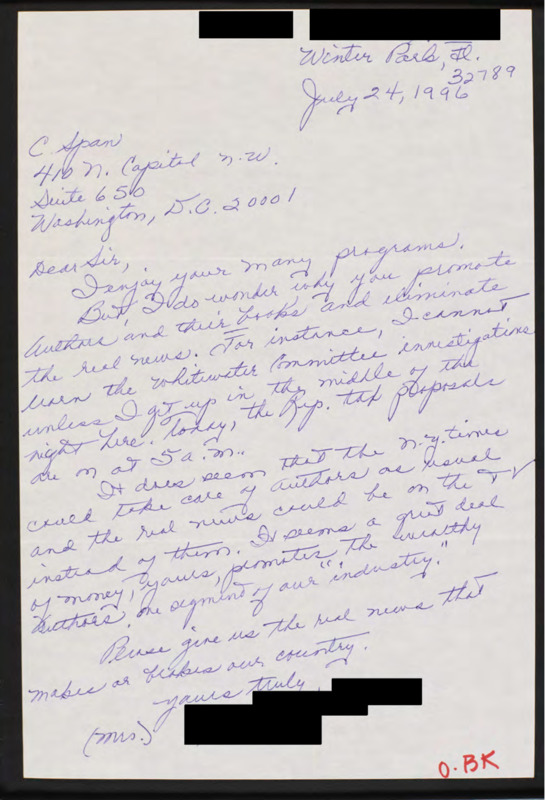 Winter Park, Fl.
32789
July 24, 1996
C Span
410 N. Capital N.W.
Suite 650
Washington, D.C. 20001
Dear Sir,
I enjoy your many programs.
But, I do wonder why you promote
authors and their books and eliminate
the real news. For instance, I cannot
learn the Whitewater Committee investigations
unless I get up in the middle of the
night here. Today, the Rep. tax proposals
are on at 5 a.m..
It does seem that the N.Y. times
could take care of authors as usual
and the real news could be on the TV
instead of them. It seems a great deal
of money, yours, promotes the wealthy
authors, one segment of our "industry."
Please give us the real news that
makes or brakes our country.
Yours truly,
(Mrs.)
O.BK